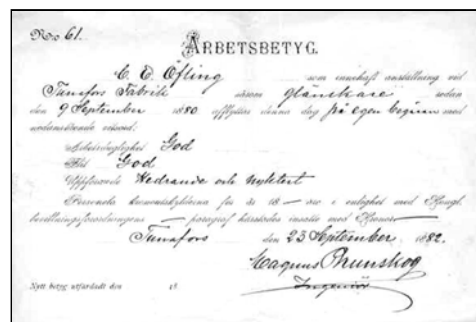 No 61.
ARBETSBETYG.
C. E. Öfling som innehaft anställning vid
Tunafors Fabrik såsom sedan
den 9 September 1880 afflyttar denna dag på egen begäran med
nedanstående vitsord:
Arbetsduglighet God
Flit God
Uppförande Hedrande och nyktert
Personela för år 18 — äro i enlighet med Kongl.
bevillningsförordningens — paragraf med Kronor —
Tunafors den 23 September 1882.
Magnus
Ingeniör
Nytt betyg utfärdadt den 18